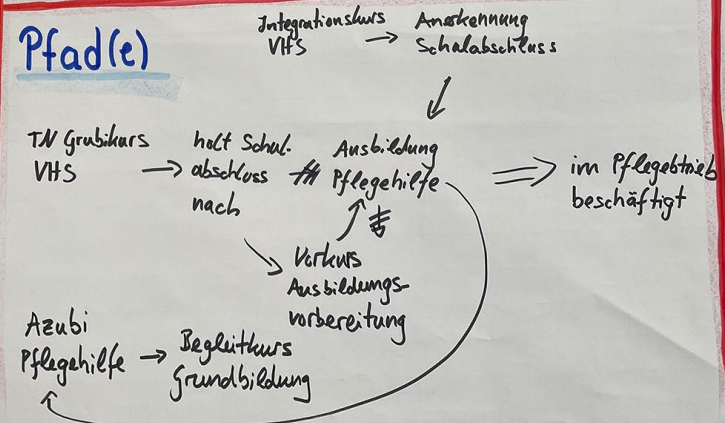 Pfad(e)
Integrationskurs
VHS → Anerkennung
Schulabschluss
TN Grubikurs
VHS
holt Schul-
abschluss
nach
Ausbildung
Pflegehilfe
im Pflegebtrieb
beschäftigt
Vorkurs
Ausbildungs-
vorbereitung
Azubi
Pflegehilfe
Begleitkurs
Grundbildung